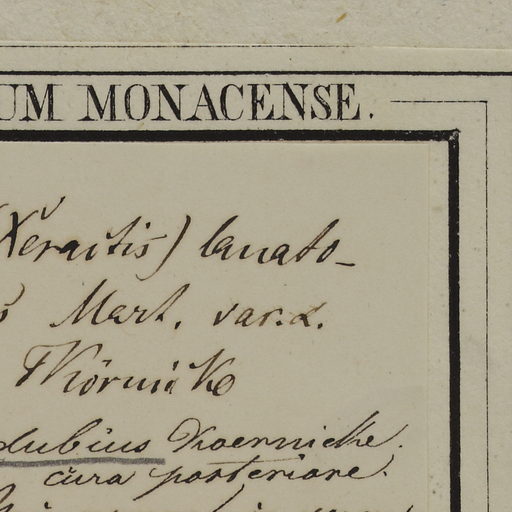 UM MONACENSE.
(Xeractis) lanato-
Mart. var. α.
Körnicke
dubius Koernicke.
cura posteriore.